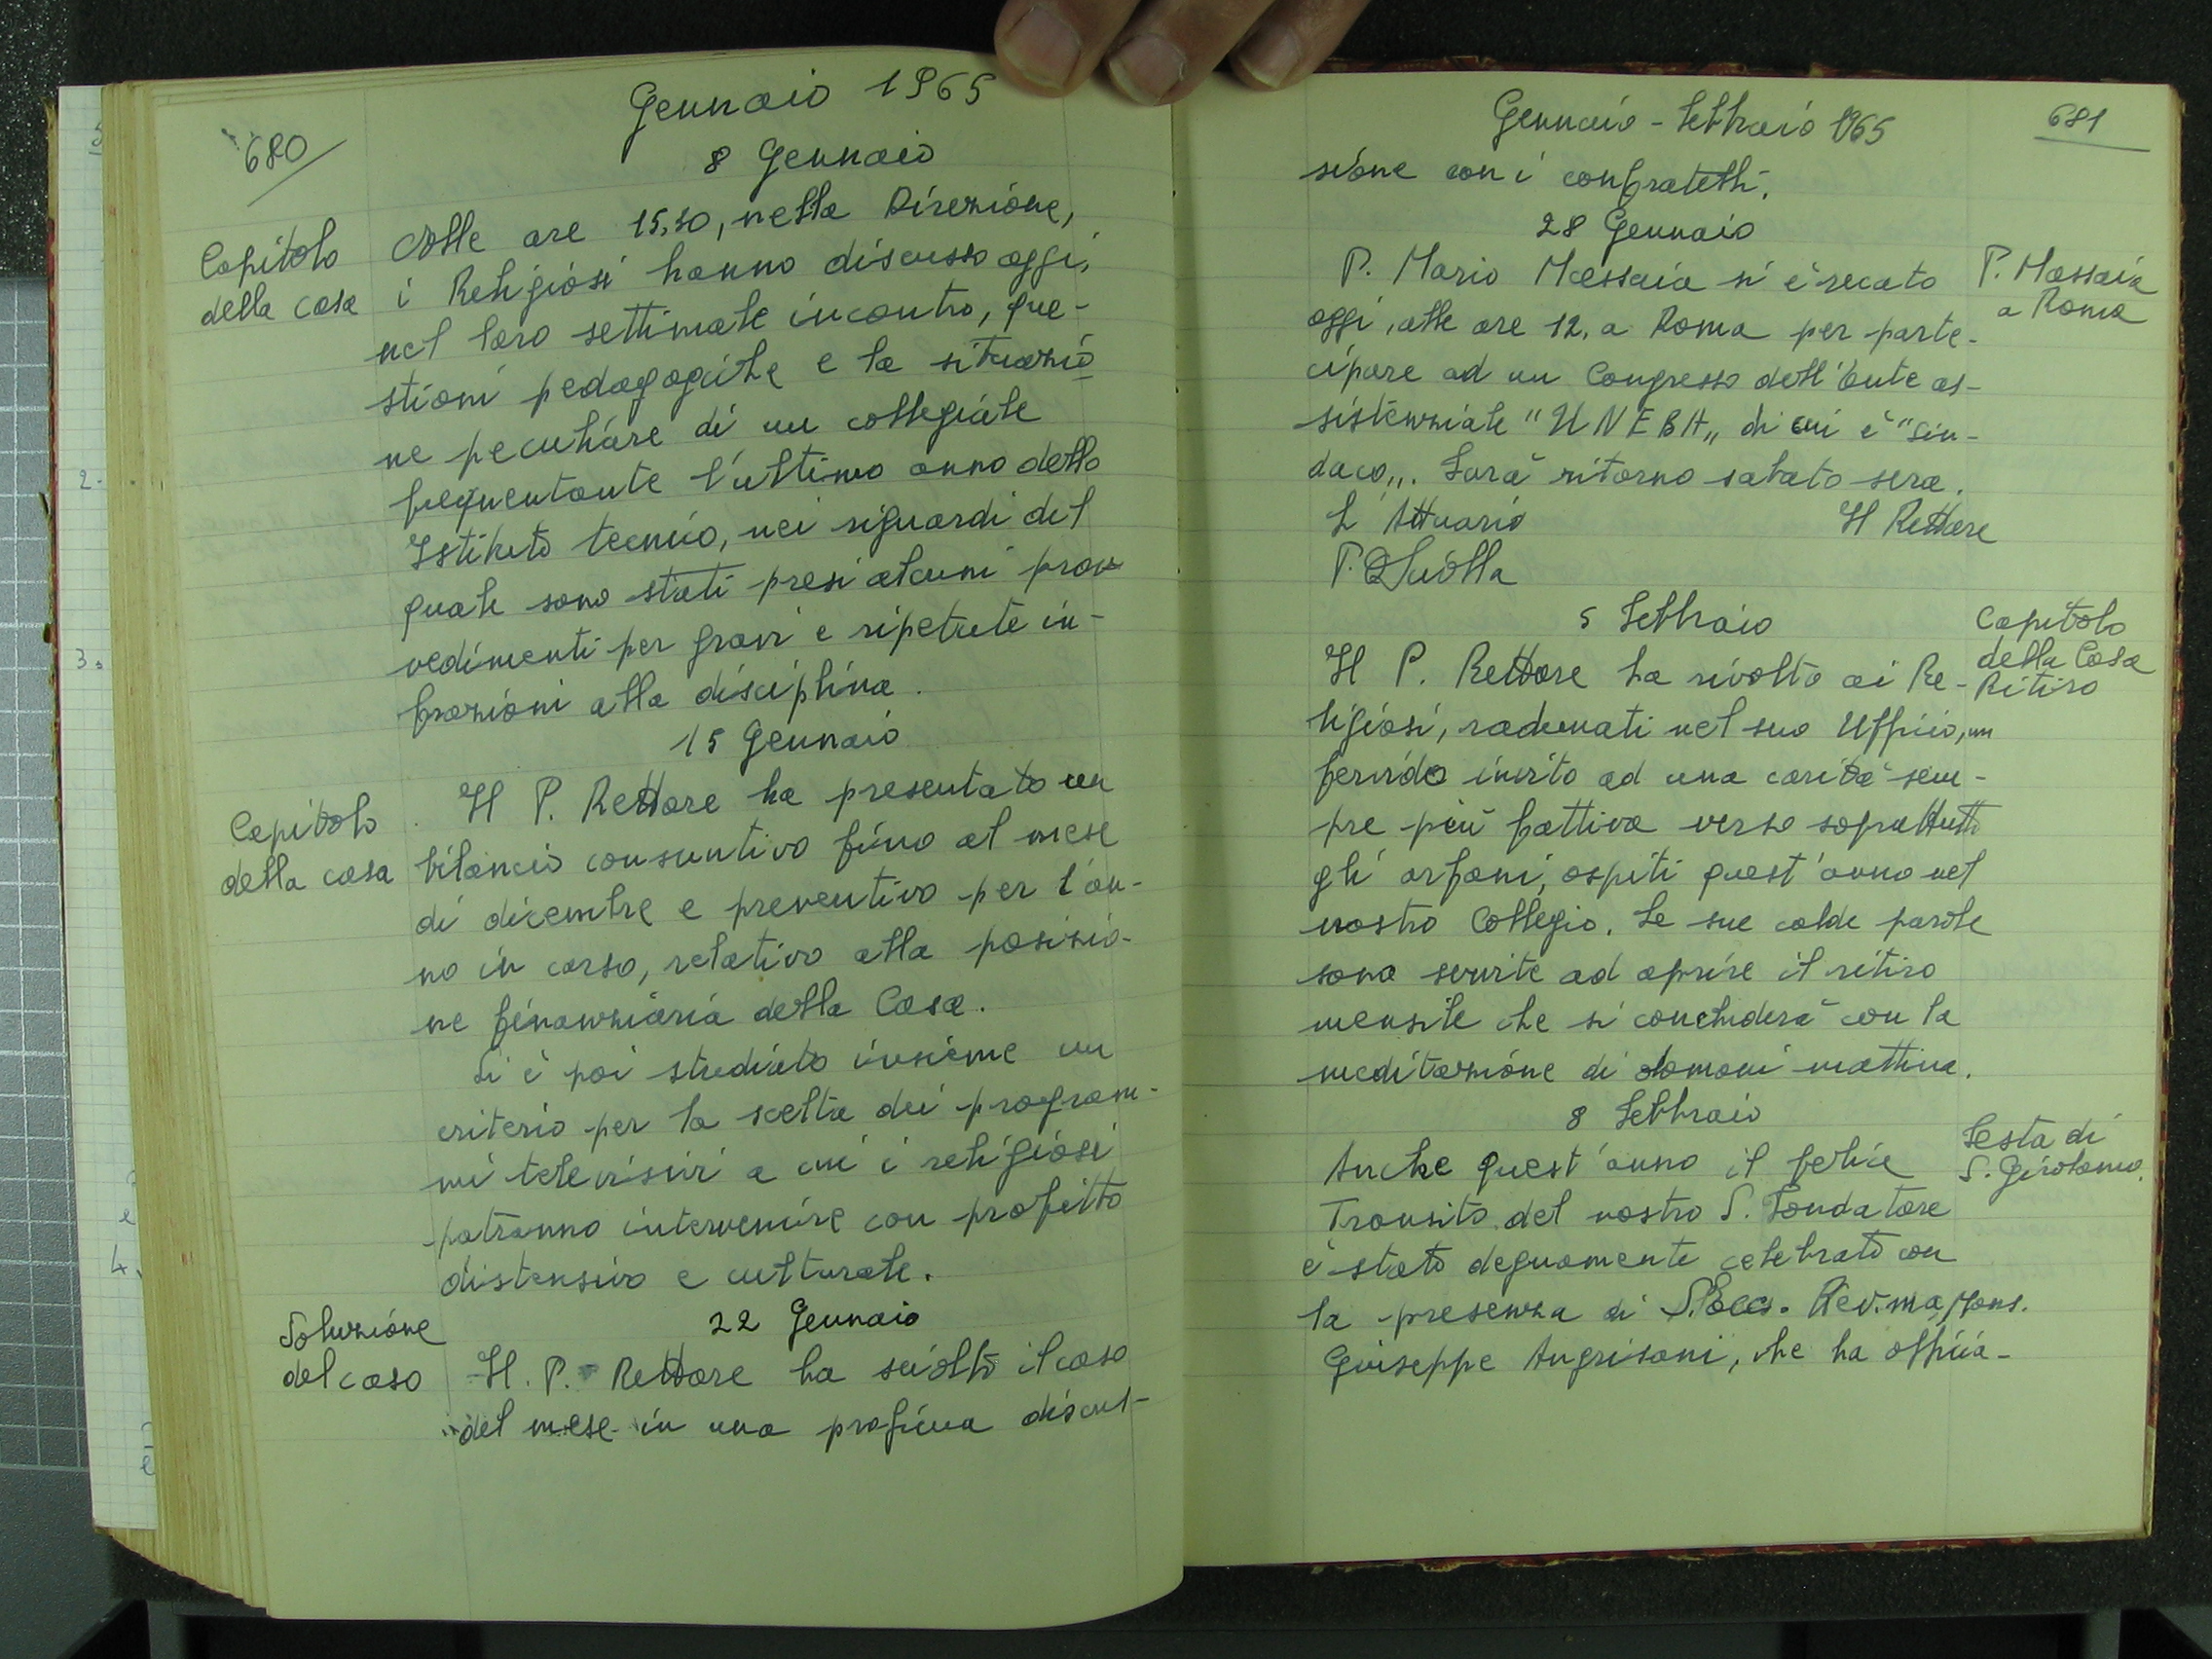 680
Gennaio 1965
8 Gennaio
Capitolo
della casa
Alle ore 15,30, nella Direzione,
i Religiosi hanno discusso oggi,
nel loro settimale incontro, que-
stioni pedagogiche e la situazio
ne peculiare di un collegiale
frequentante l'ultimo anno dello
Istituto tecnico, nei riguardi del
quale sono stati presi alcuni prov
vedimenti per gravi e ripetute in-
frazioni alla disciplina.
15 Gennaio
Capitolo
della casa
Il P. Rettore ha presentato un
bilancio consuntivo fino al mese
di dicembre e preventivo per l'an-
no in corso, relativo alla posizio-
ne finanziaria della Casa.
Si è poi studiato insieme un
criterio per la scelta dei program-
mi televisivi a cui i religiosi
potranno intervenire con profitto
distensivo e culturale.
22 Gennaio
Soluzione
del caso
Il P. Rettore ha sciolto il caso
del mese in una proficua discus-
Gennaio - Febbraio 1965
681
sione con i confratelli.
28 Gennaio
P. Massaia
a Roma
P. Mario Massaia si è recato
oggi, alle ore 12, a Roma per parte-
cipare ad un Congresso dell'Ente as-
sistenziale "UNEBA„ di cui è "Sin-
daco„. Farà ritorno sabato sera.
L'Attuario
Il Rettore
P.
5 Febbraio
Capitolo
della Casa
Ritiro
Il P. Rettore ha rivolto ai Re-
ligiosi, radunati nel suo Ufficio, un
fervido invito ad una carità sem-
pre più fattiva verso soprattutto
gli orfani, ospiti quest'anno nel
nostro Collegio. Le sue calde parole
sono servite ad aprire il ritiro
mensile che si concluderà con la
meditazione di domani mattina.
8 Febbraio
Festa di
S. Girolamo.
Anche quest'anno il felice
Transito del nostro S. Fondatore
è stato degnamente celebrato con
la presenza di S. Ecc. Rev.ma Mons.
Giuseppe Angrisani, che ha officia-
2.
3.
4.